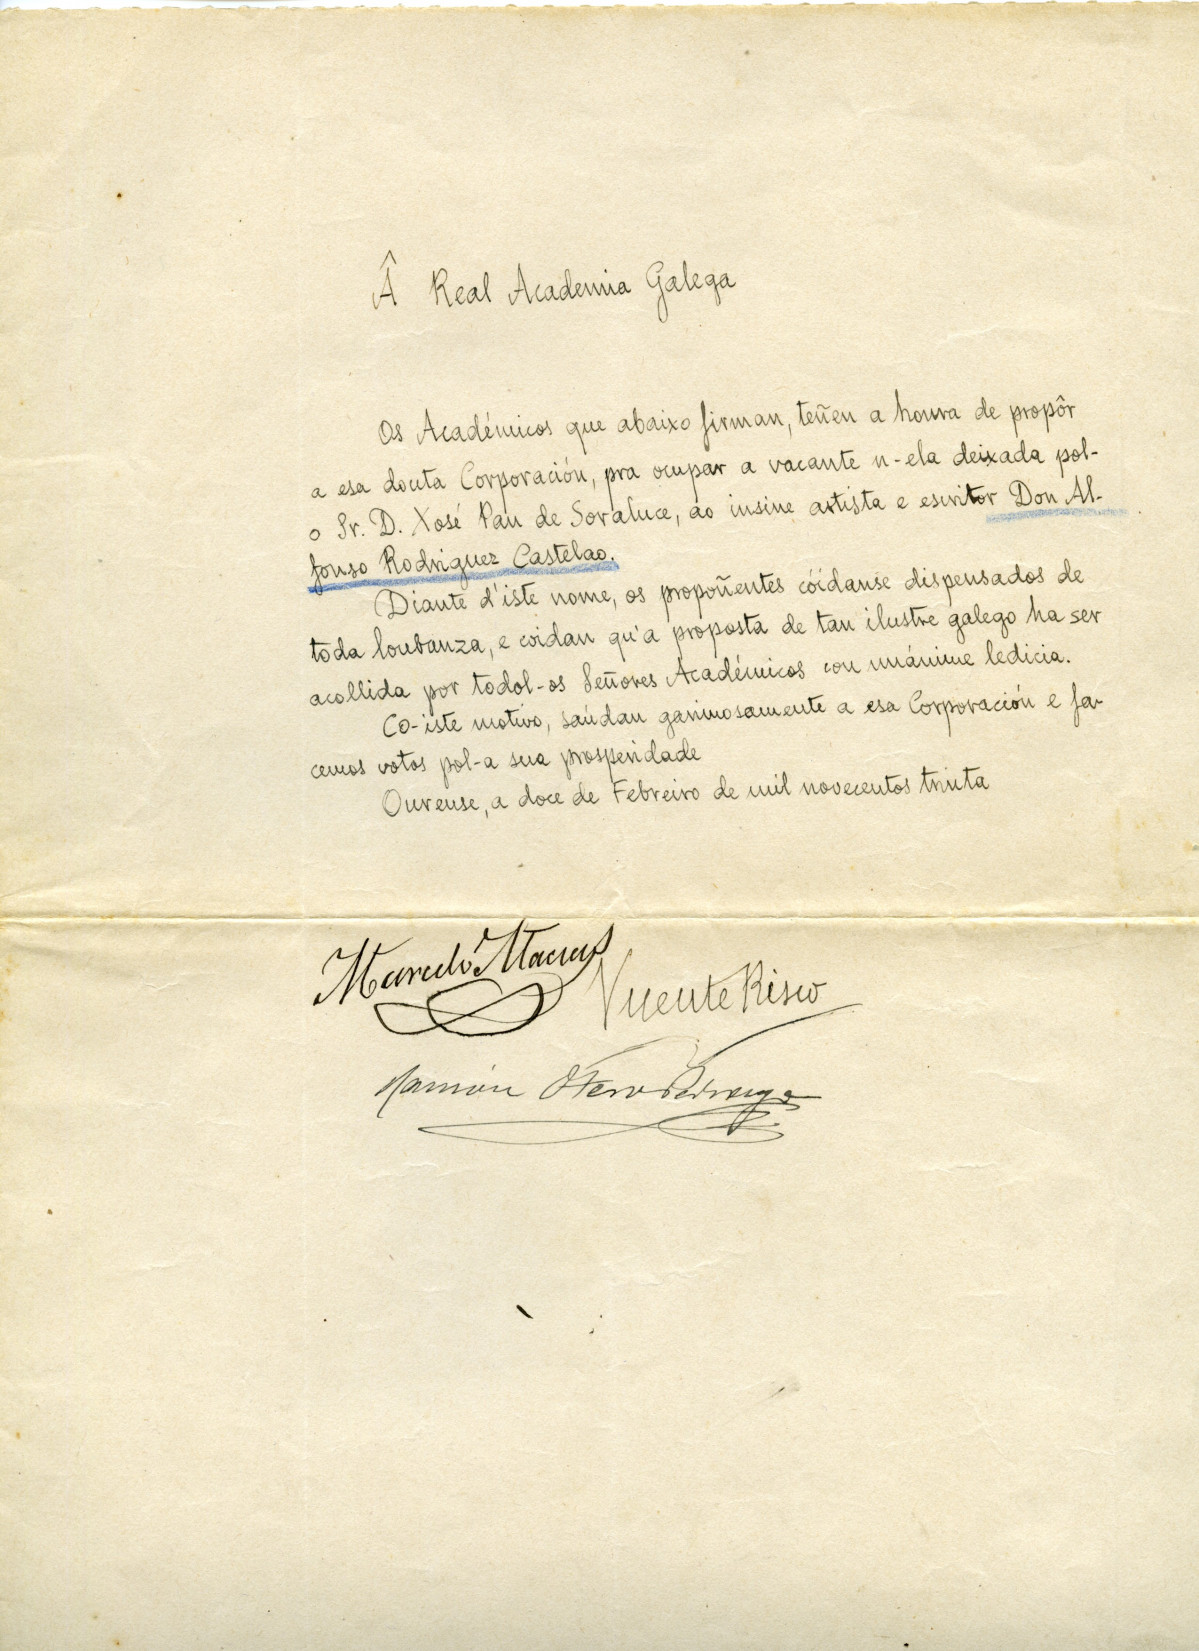 Â Real Academia Galega
Os Académicos que abaixo firman, teñen a honra de propôr
a esa douta Corporación, pra ocupar a vacante n-ela deixada pol-
o Sr. D. Xosé Pan de Soraluce, ao insine artista e escritor Don Al-
fonso Rodriguez Castelao.
Diante d'iste nome, os propoñentes cóidanse dispensados de
toda loubanza, e coidan qu'a proposta de tan ilustre galego ha ser
acollida por todol-os Señores Académicos con unánime ledicia.
Co-iste motivo, saúdan garimosamente a esa Corporación e fa-
cemos votos pol-a sua prosperidade
Ourense, a doce de Febreiro de mil novecentos trinta
Marcelo Macías
Vicente Risco
Ramón Otero Pedrayo